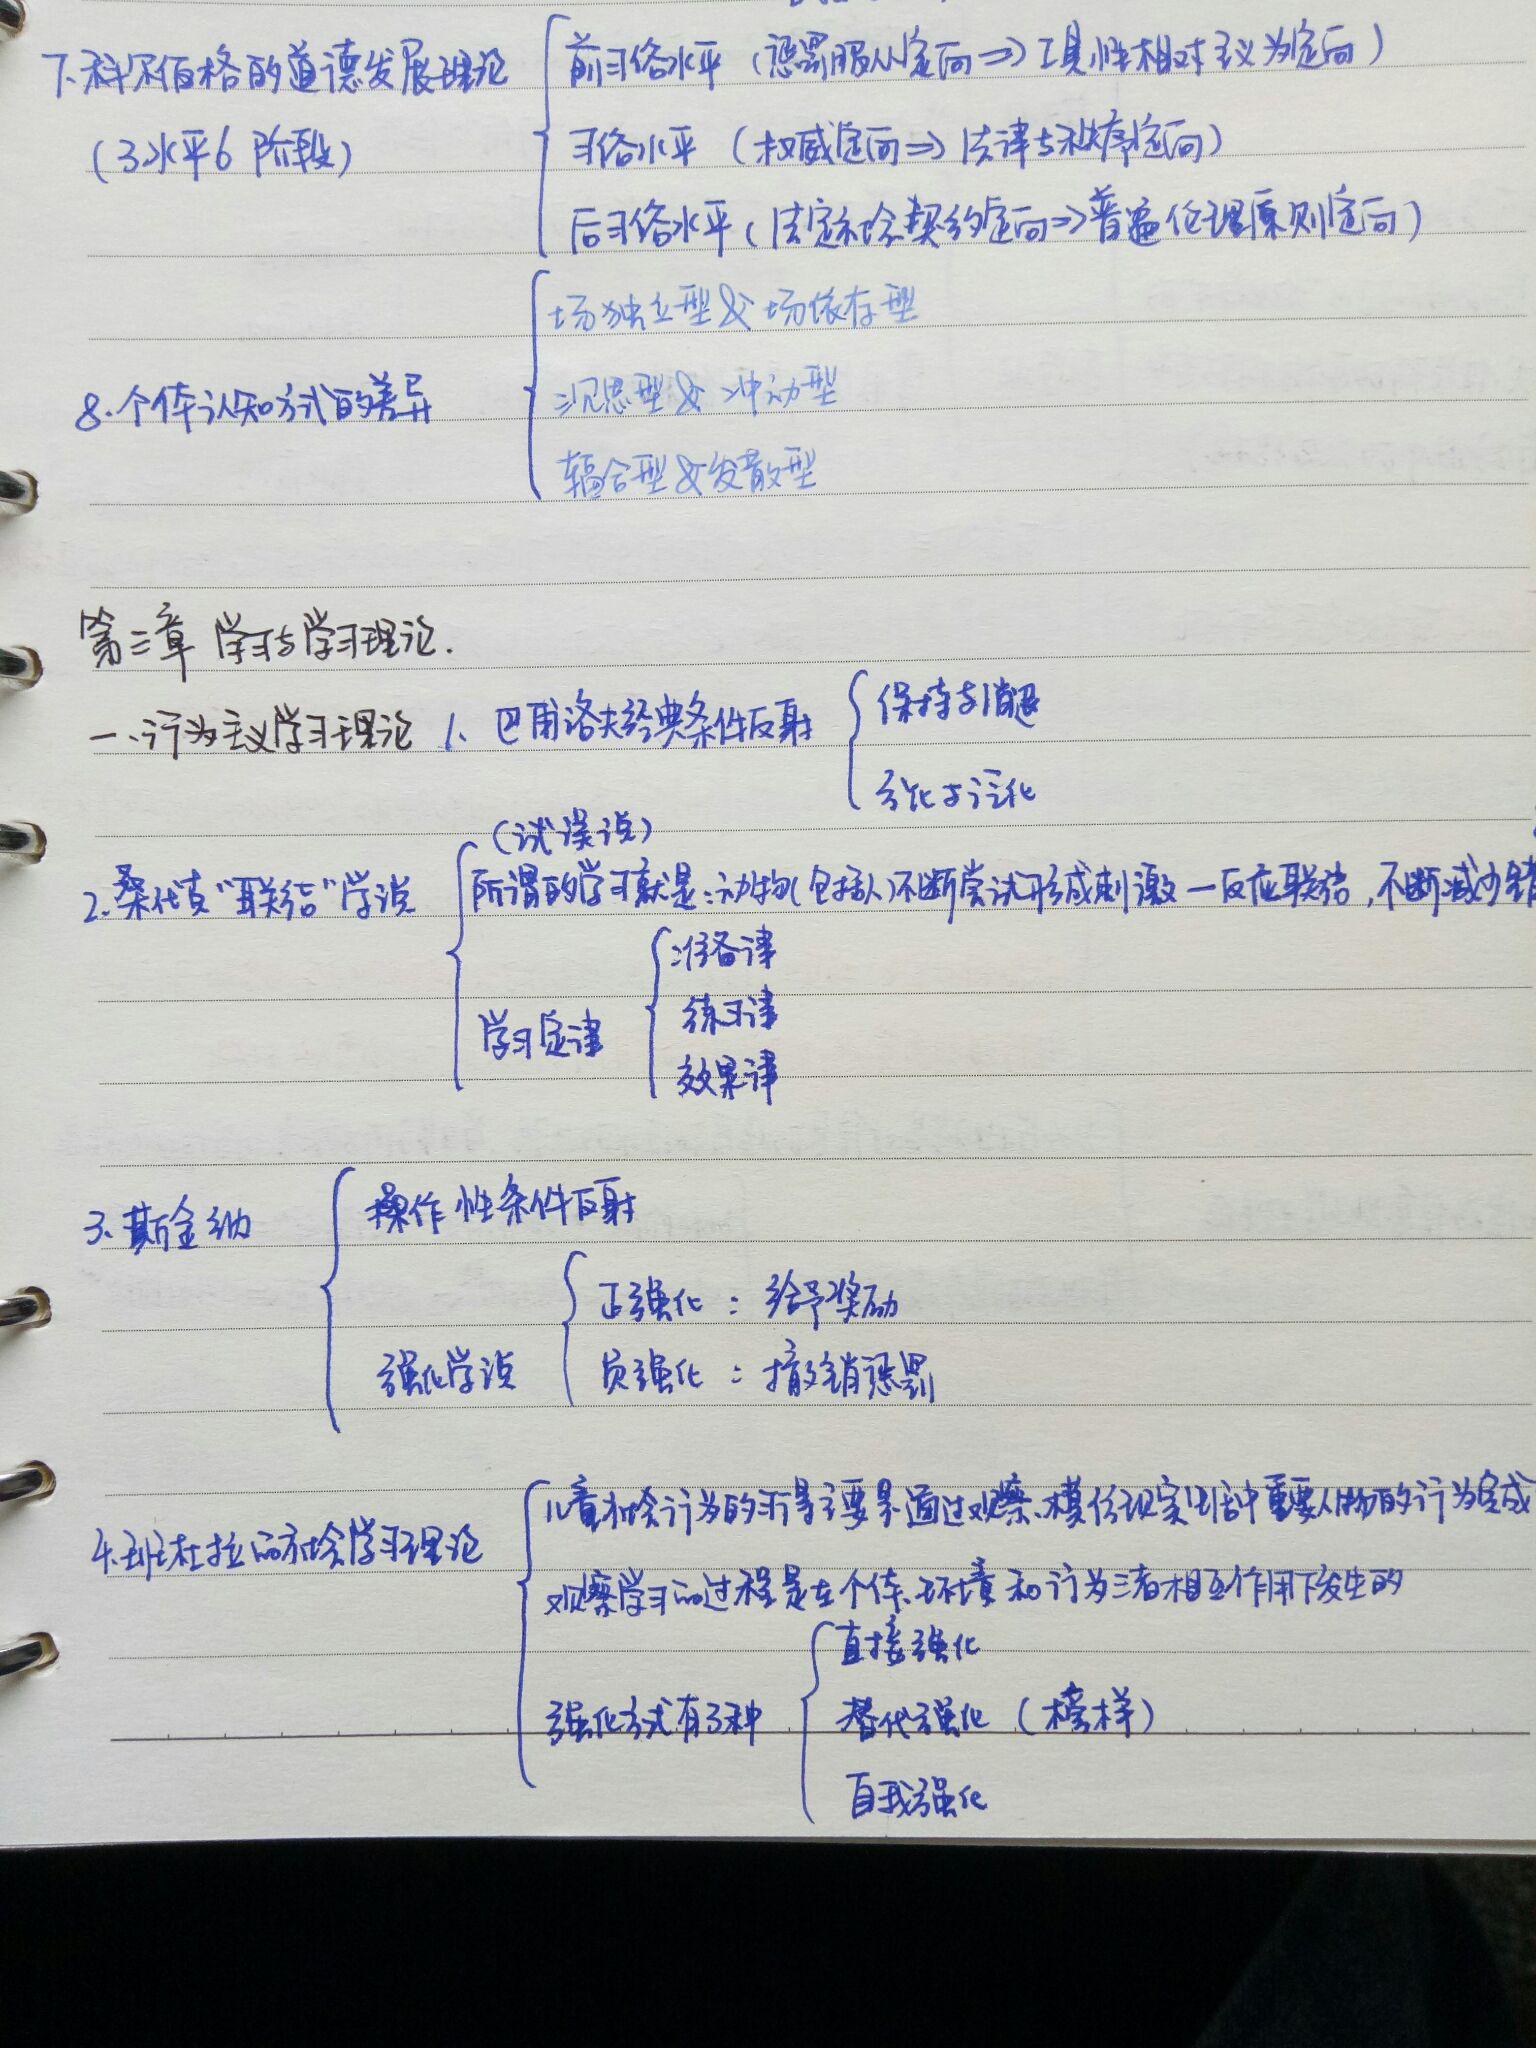 7.科尔伯格的道德发展理论
(3水平6阶段)
前习俗水平(惩罚服从定向⇒工具性相对主义为定向)
习俗水平(权威定向⇒法律与秩序定向)
后习俗水平(法定社会契约定向⇒普遍伦理原则定向)
8.个体认知方式的差异
场独立型&场依存型
沉思型&冲动型
辐合型&发散型
第三章 学习与学习理论.
一、行为主义学习理论 1、巴甫洛夫经典条件反射
保持与消退
分化与泛化
2.桑代克"联结"学说
(试误说)
所谓的学习就是:动物(包括人)不断尝试形成刺激—反应联结,不断减少错
学习定律
准备律
练习律
效果律
3.斯金纳
操作性条件反射
强化学说
正强化:给予奖励
负强化:撤销惩罚
4.班杜拉的社会学习理论
儿童社会行为的习得主要是通过观察、模仿现实生活中重要人物的行为完成
观察学习的过程是在个体、环境和行为三者相互作用下发生的
强化方式有3种
直接强化
替代强化(榜样)
自我强化